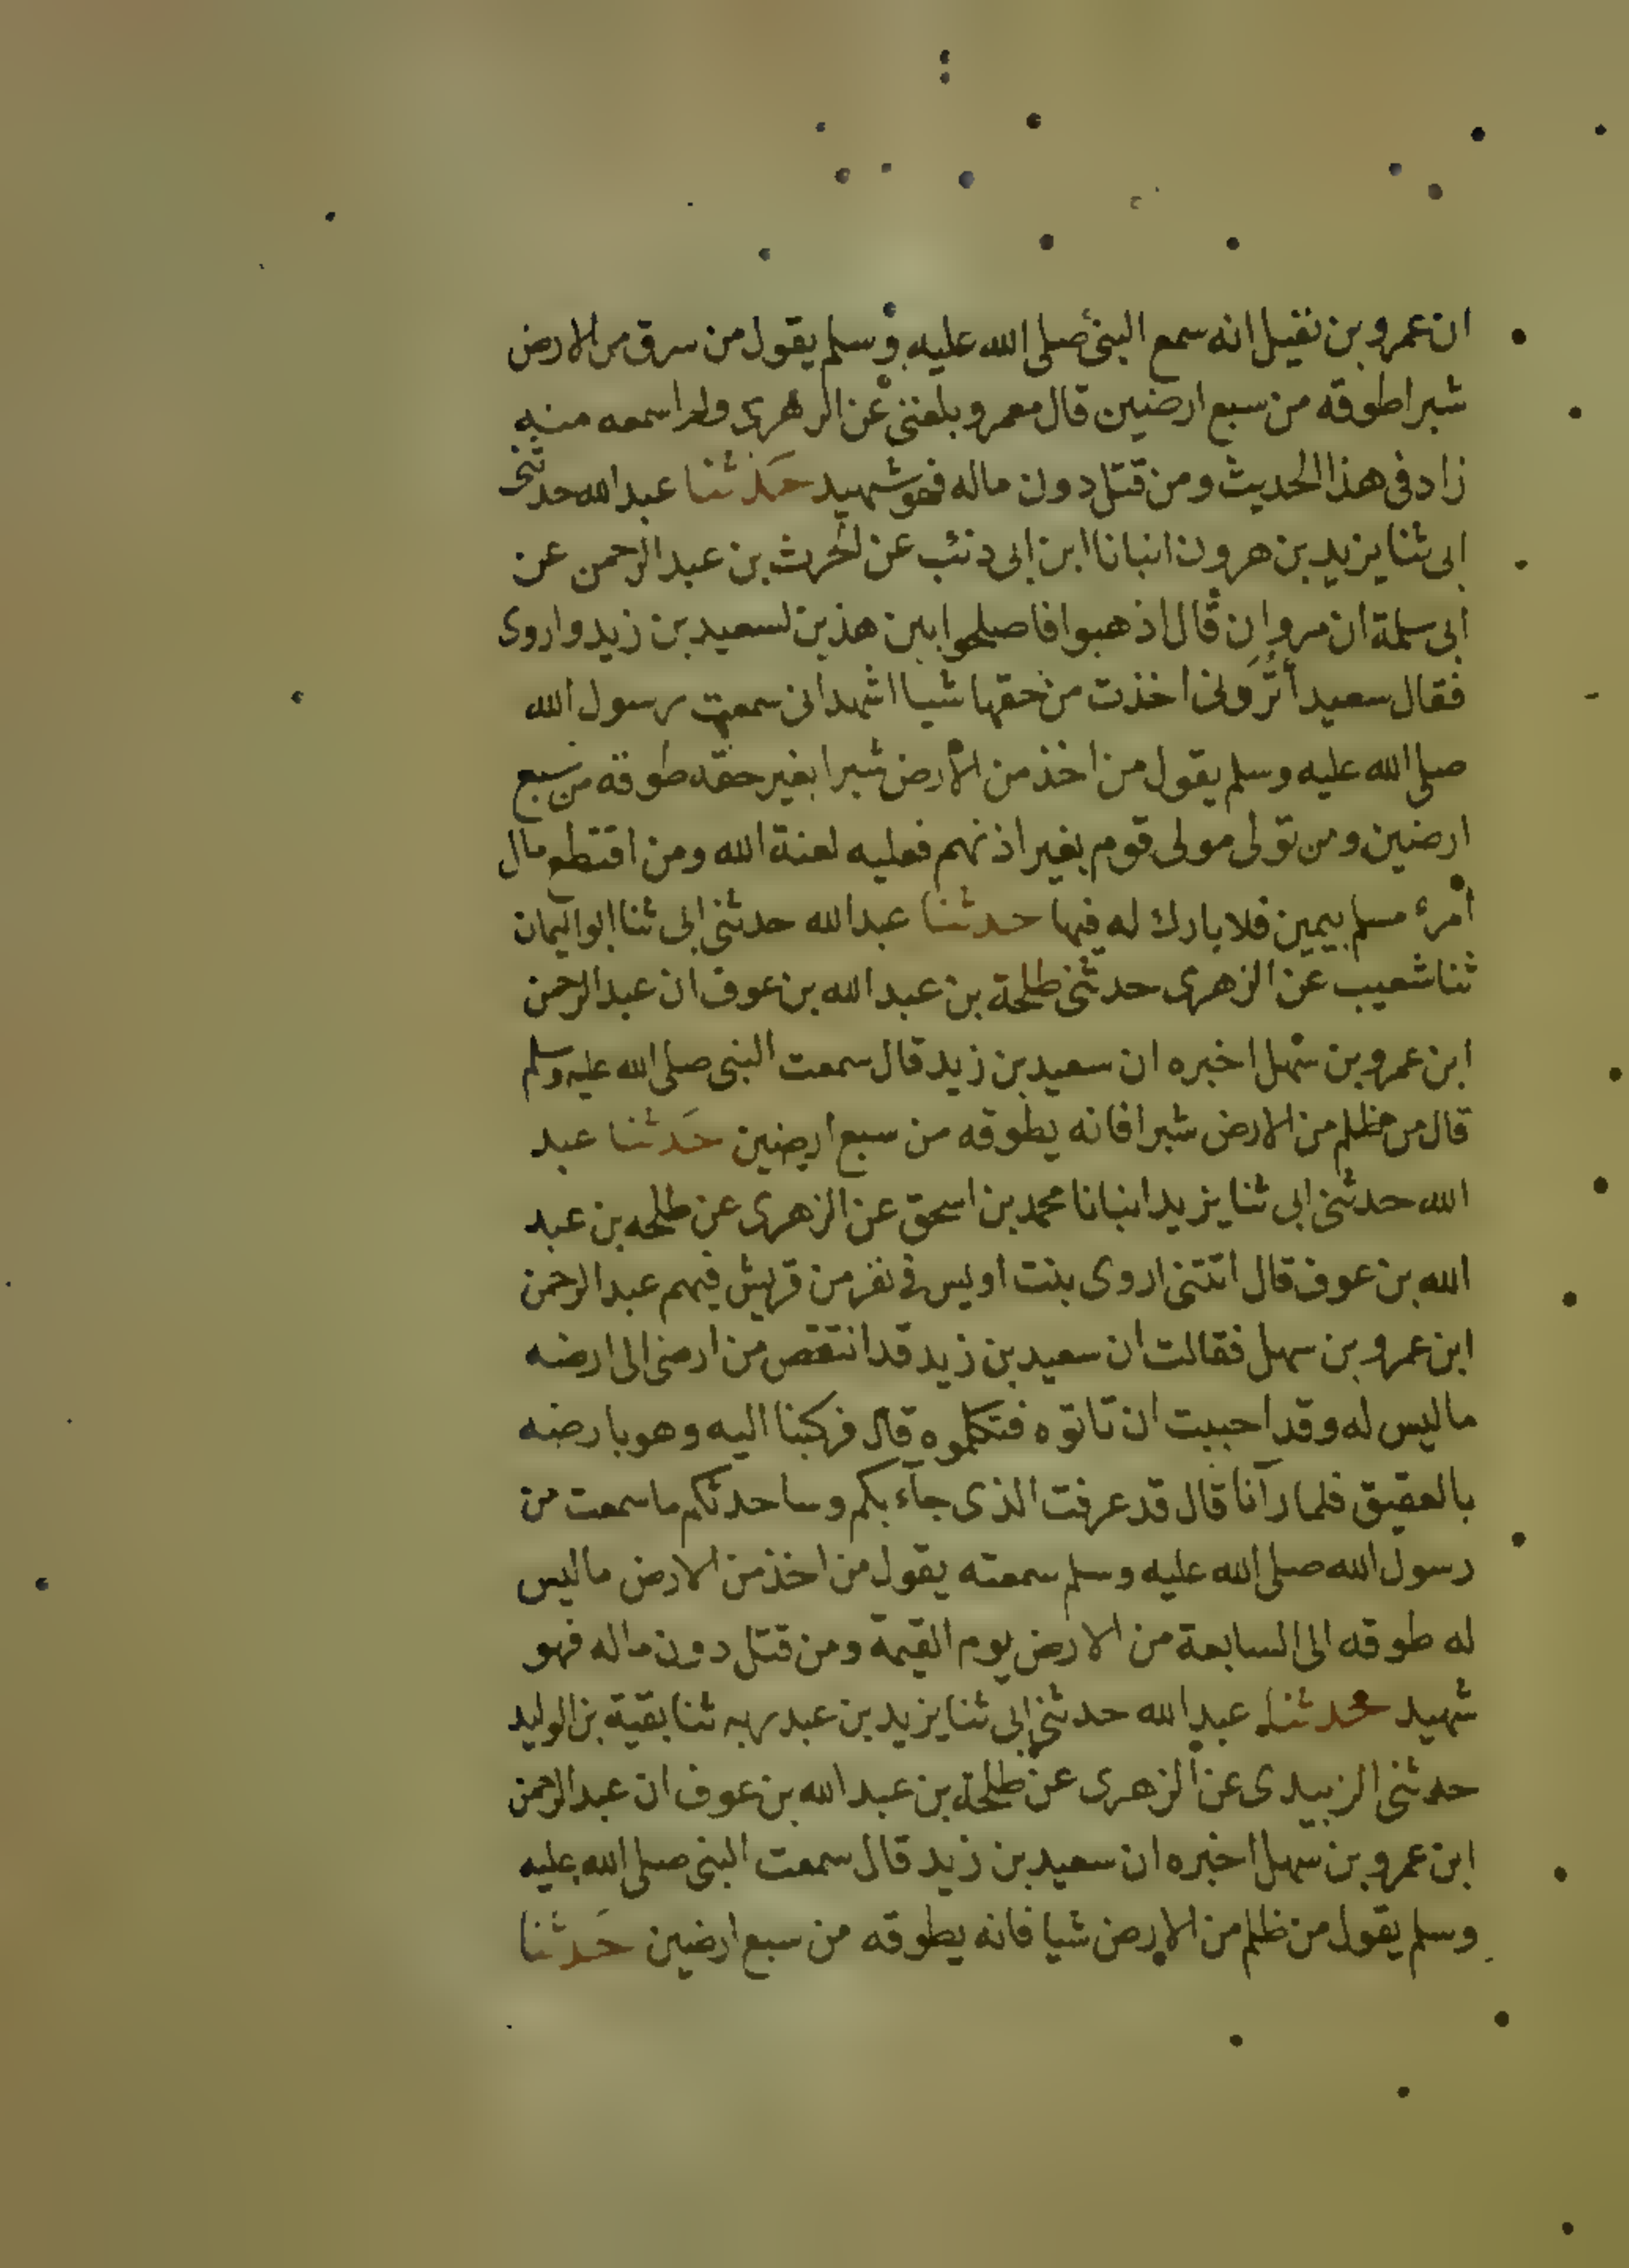 ان عمرو بن نفيل انه سمع النبى صلى الله عليه وسلم يقول من سرق من الارض
شبرا طوقه من سبع ارضين قال معمر و بلغنى عن الزهرى ولم اسمعه منه
زاد فى هذا الحديث ومن قتل دون ماله فهو شهيد حدثنا عبد الله حدثنى
ابى ثنا يزيد بن هرون انبانا ابن ابى ذئب عن الحرث بن عبد الرحمن عن
ابى سلمة ان مروان قال اذهبوا فاصلحوا بين هذين لسعيد بن زيد واروى
فقال سعيد أترونى اخذت من حقها شيا اشهد انى سمعت رسول الله
صلى الله عليه وسلم يقول من اخذ من الارض شبرا بغير حقه طوقه من سبع
ارضين ومن تولى مولى قوم بغير اذنهم فعليه لعنة الله ومن اقتطع مال
أمرء مسلم بيمين فلا بارك له فيها حدثنا عبد الله حدثنى ابى ثنا ابو اليمان
ثنا شعيب عن الزهرى حدثنى طلحة بن عبد الله بن عوف ان عبد الرحمن
ابن عمرو بن سهل اخبره ان سعيد بن زيد قال سمعت النبى صلى الله عليه وسلم
قال من ظلم من الارض شبرا فانه يطوقه من سبع ارضين حدثنا عبد
الله حدثنى ابى ثنا يزيد انبانا محمد بن اسحق عن الزهرى عن طلحه بن عبد
الله بن عوف قال اتتنى اروى بنت اويس فى نفر من قريش فيهم عبد الرحمن
ابن عمرو بن سهل فقالت ان سعيد بن زيد قد انتقص من ارضى الى ارضه
ما ليس له وقد احببت ان تاتوه فتكلموه قال فركبنا اليه وهو بارضه
بالعقيق فلما رآنا قال قد عرفت الذى جآء بكم وساحدثكم ما سمعت من
رسول الله صلى الله عليه وسلم سمعته يقول من اخذ من الارض ما ليس
له طوقه الى السابعة من الارض يوم القيمة ومن قتل دون ماله فهو
شهيد حدثنا عبد الله حدثنى ابى ثنا يزيد بن عبد ربه ثنا بقية بن الوليد
حدثنى الزبيدى عن الزهرى عن طلحة بن عبد الله بن عوف ان عبد الرحمن
ابن عمرو بن سهل اخبره ان سعيد بن زيد قال سمعت النبى صلى الله عليه
وسلم يقول من ظلم من الارض شيا فانه يطوقه من سبع ارضين حدثنا